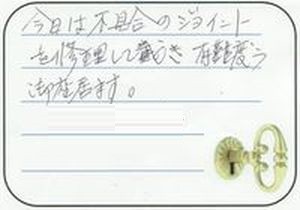 今日は不具合のジョイント
を修理して戴き 有難う
御座居ます。